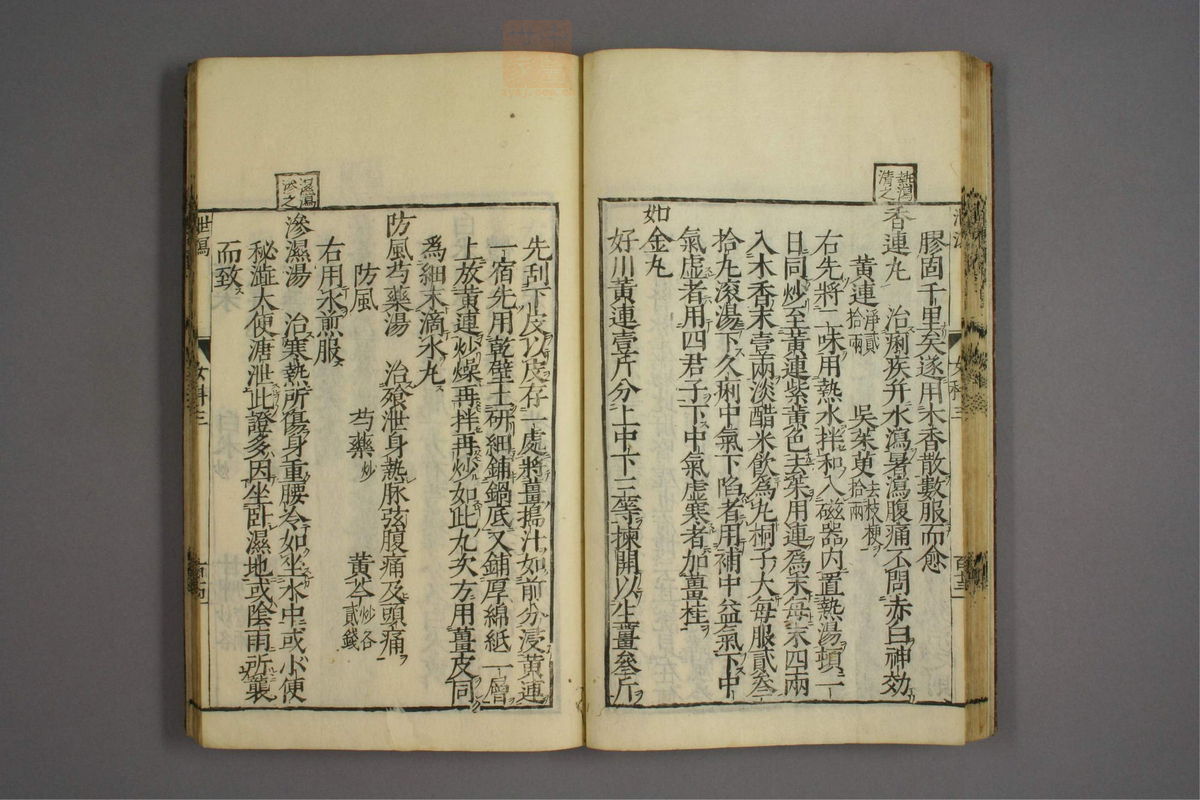 膠固千里矣遂用木香散數服而愈
熱瀉
清之
香連丸 治痢疾并水瀉暑瀉腹痛不問赤白神効
黃連淨貳拾兩 吳茱萸去枝梗拾兩
右先將二味用熱水拌和入磁器內置熱湯頓一
日同炒至黃連紫黃色去茱用連爲末每末四兩
入木香末壹兩淡醋米飮爲丸桐子大每服貳叁
拾丸滾湯下久痢中氣下陷者用補中益氣下中
氣虛者用四君子下中氣虛寒者加薑桂
如金丸
好川黃連壹斤分上中下三等揀開以生薑叁斤
先刮下皮以皮存一處將薑搗汁如前分浸黃連
一宿先用乾壁土研細鋪鍋底又鋪厚綿紙一層
上放黃連炒燥再拌再炒如此九次方用薑皮同
爲細末滴水丸
防風芍藥湯 治飱泄身熱脉弦腹痛及頭痛
防風 芍藥炒 黃芩炒各貳錢
右用水煎服
濕瀉
滲之
滲濕湯 治寒熱所傷身重腰冷如坐水中或小便
秘澁大便溏泄此證多因坐卧濕地或陰雨所襲
而致
泄瀉 女科三 百十四